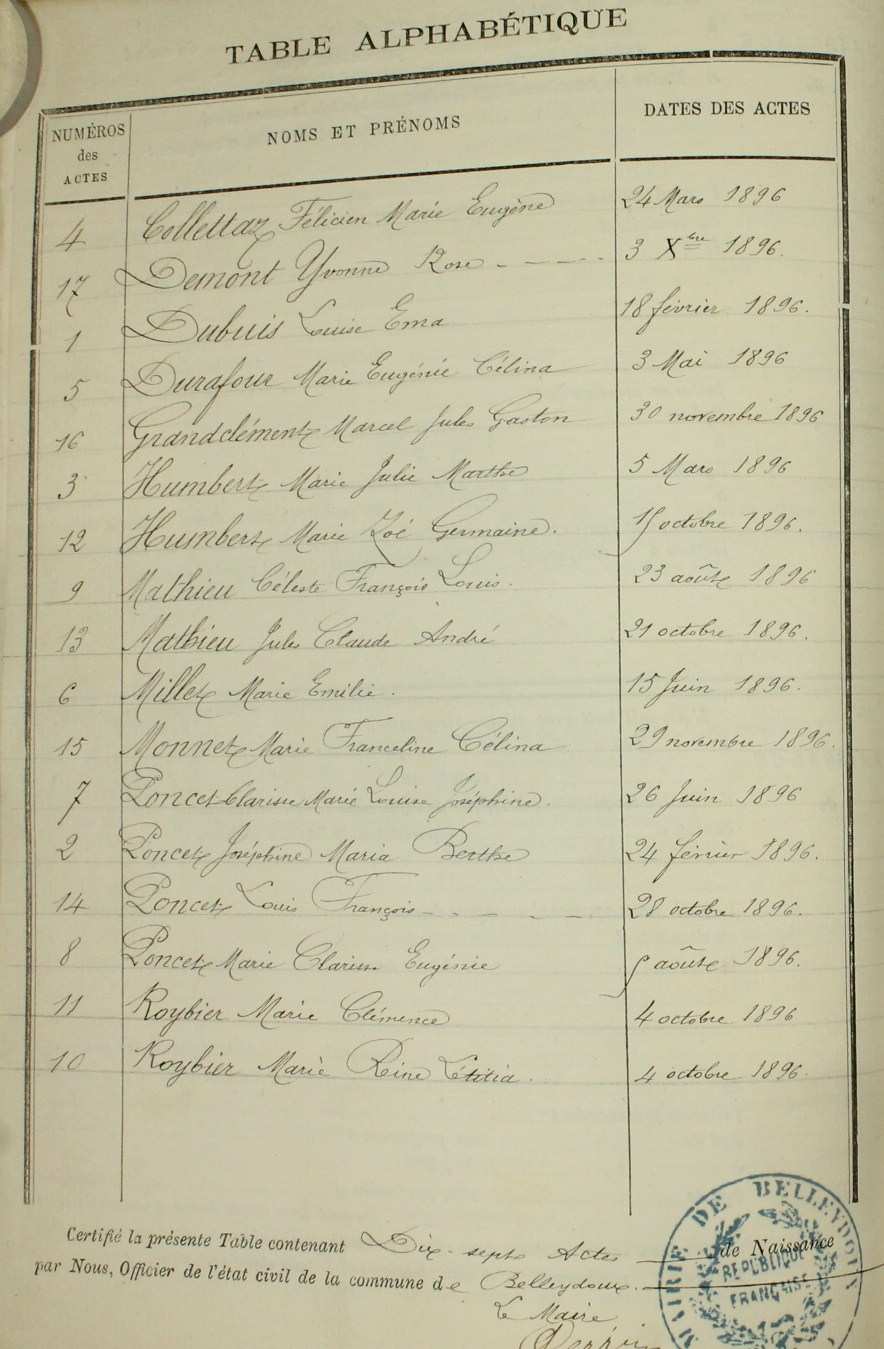 TABLE ALPHABÉTIQUE
NUMÉROS des ACTES NOMS ET PRÉNOMS DATES DES ACTES
4 Collettaz Félicien Marie Eugène 24 Mars 1896
17 Demont Yvonne Rose - - - - 3 Xbre 1896.
1 Dubuis Louise Ema 18 février 1896.
5 Durafour Marie Eugénie Célina 3 Mai 1896
16 Grandclément Marcel Jules Gaston 30 novembre 1896
3 Humbert Marie Julie Marthe 5 Mars 1896
12 Humbert Marie Zoé Germaine. octobre 1896.
9 Mathieu Céleste François Louis. 23 août 1896
13 Mathieu Jules Claude André 21 octobre 1896.
6 Millet Marie Emilie. 15 Juin 1896.
15 Monnet Marie Franceline Célina 29 novembre 1896.
7 Poncet Clarisse Marie Louise Joséphine. 26 Juin 1896
2 Poncet Joséphine Maria Berthe 24 février 1896.
14 Poncet Louis François - - - - 28 octobre 1896.
8 Poncet Marie Clarisse Eugénie août 1896.
11 Roybier Marie Clémence 4 octobre 1896
10 Roybier Marie Reine Létitia. 4 octobre 1896.
Certifié la présente Table contenant Dix-sept Actes de Naissance
par Nous, Officier de l'état civil de la commune de Belleydoux.
Le Maire
MAIRIE DE BELLEYDOUX
RÉPUBLIQUE
FRANÇAISE